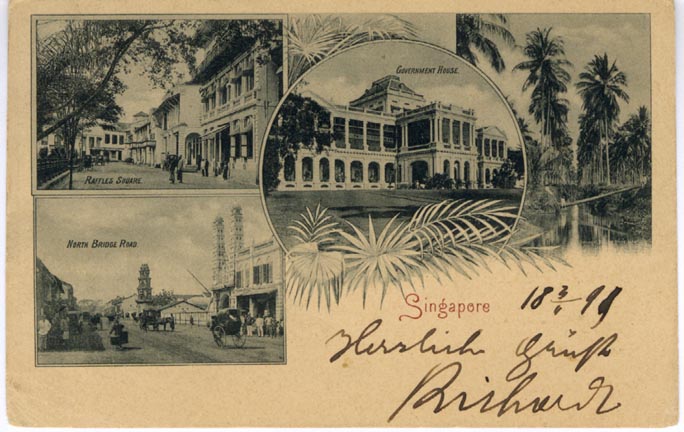 RAFFLES SQUARE.
GOVERNMENT HOUSE.
NORTH BRIDGE ROAD.
Singapore
18 3/1 99
Herzliche Grüße
Richardt